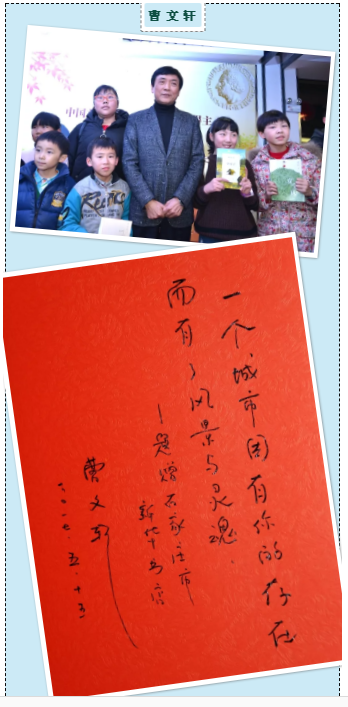 曹文轩
中国
一个城市因有你的存在
而有了风景与灵魂.
—题赠石家庄市
新华书店
曹文轩
二〇一七.五.十三